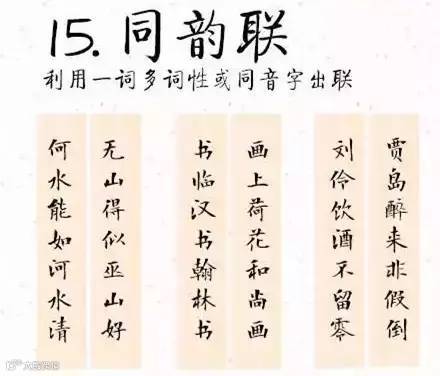 15.同韵联
利用一词多词性或同音字出联
贾岛醉来非假倒
刘伶饮酒不留零
画上荷花和尚画
书临汉书翰林书
无山得似巫山好
何水能如河水清